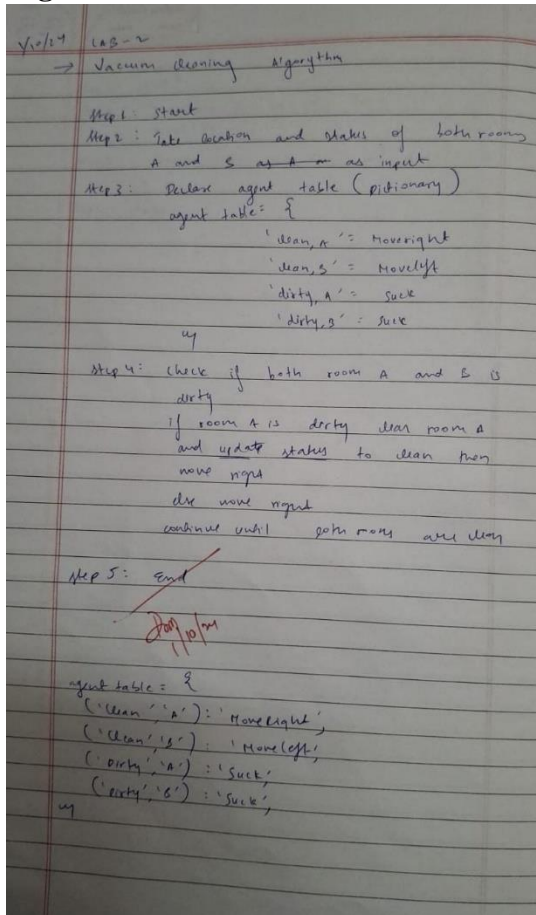 1/10/24 LAB-2
→ Vacuum cleaning Algorythm
Step 1: Start
Step 2: Take location and status of both rooms
A and B as input
Step 3: Declare agent table (Dictionary)
agent table = {
'clean, A' = Moveright
'clean, B' = Moveleft
'dirty, A' = Suck
'dirty, B' = Suck
}
Step 4: Check if both room A and B is
dirty
if room A is dirty clean room A
and update status to clean then
move right
else move right
continue until both rooms are clean
Step 5: End
1/10/24
agent table = {
('Clean', 'A') : 'MoveRight',
('Clean', 'B') : 'MoveLeft',
('Dirty', 'A') : 'Suck',
('Dirty', 'B') : 'Suck',
}